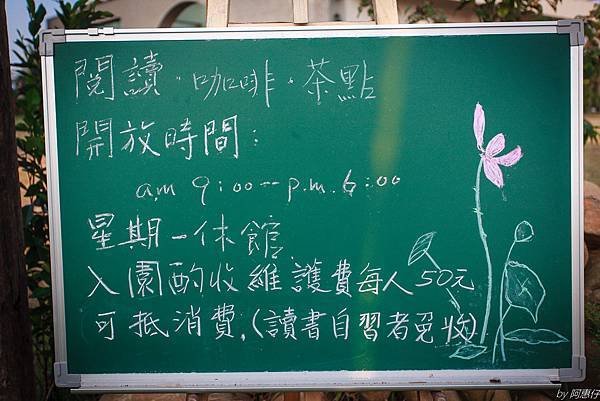 閱讀．咖啡．茶點
開放時間：
a.m 9:00--p.m.6:00
星期一休館
入園酌收維護費每人50元
可抵消費.(讀書自習者免收)
by 阿惠仔